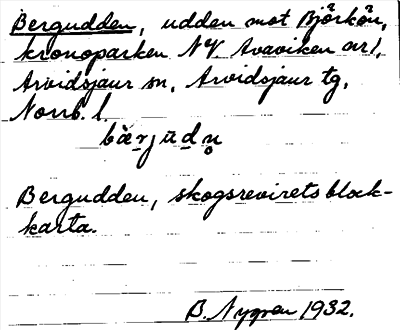 Bergudden, udden mot Björkön,
kronoparken NV. Avaviken nr 1,
Arvidsjaur sn, Arvidsjaur tg,
Norrb. l.
bæ̀rjūdn̥
Bergudden, skogsrevirets block-
karta.
B. Nygren 1932.